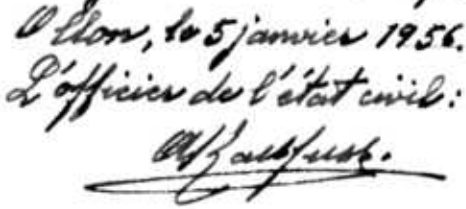 Ollon, le 5 janvier 1956.
L'officier de l'état civil: